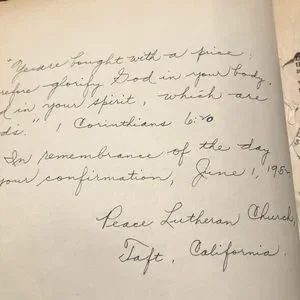 "You are bought with a price :
refore glorify God in your body,
d in your spirit, which are
ds." 1 Corinthians 6:20
In remembrance of the day
your confirmation, June 1, 195
Peace Lutheran Church,
Taft, California.